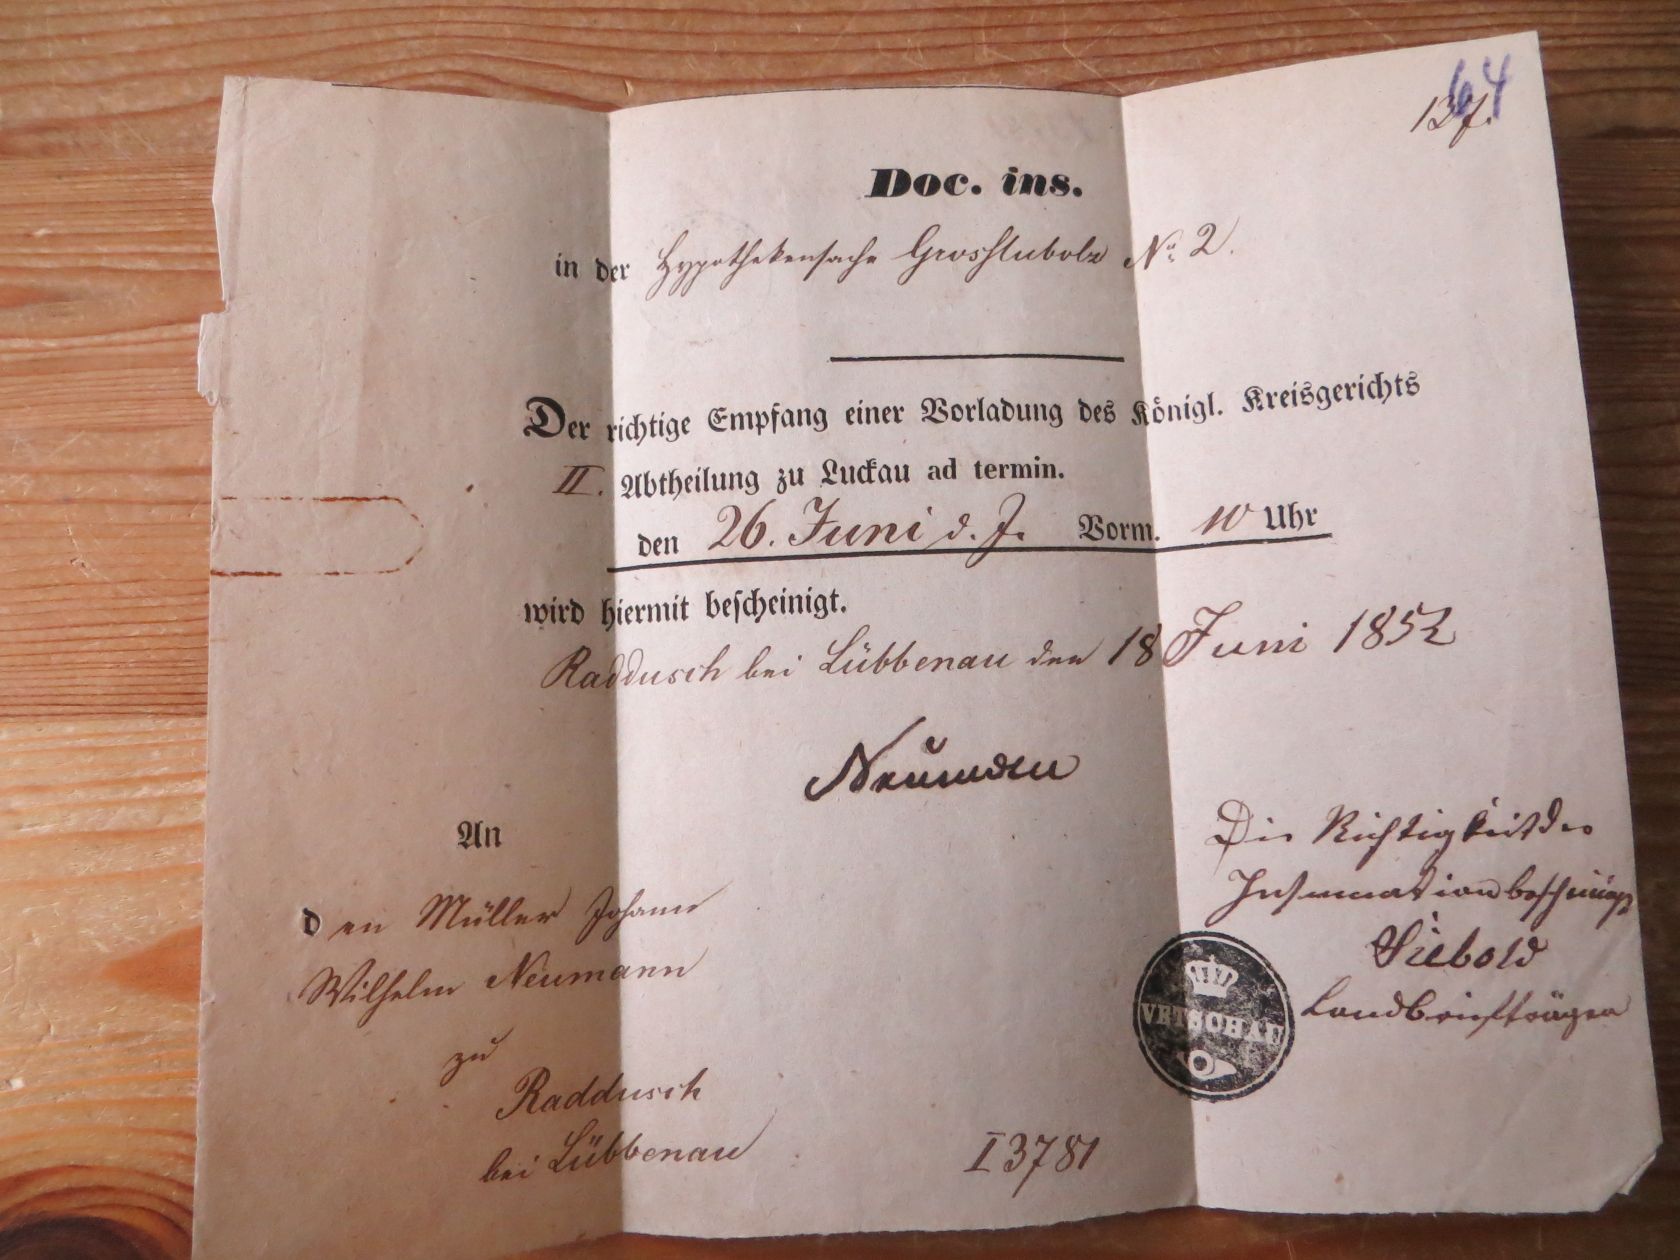 64
137.
Doc. ins.
in der Hypothekensache Grosslubolz No 2.
Der richtige Empfang einer Vorladung des Königl. Kreisgerichts
II. Abtheilung zu Luckau ad termin.
den 26. Juni d. J. Vorm. 10 Uhr
wird hiermit bescheinigt.
Raddusch bei Lübbenau den 18 Juni 1852
Neumann
An
den Müller Johann
Wilhelm Neumann
zu
Raddusch
bei Lübbenau
Die Richtigkeit der
Insinuation bescheinigt
Siebold
Landbriefträger
VETSCHAU
I 3781